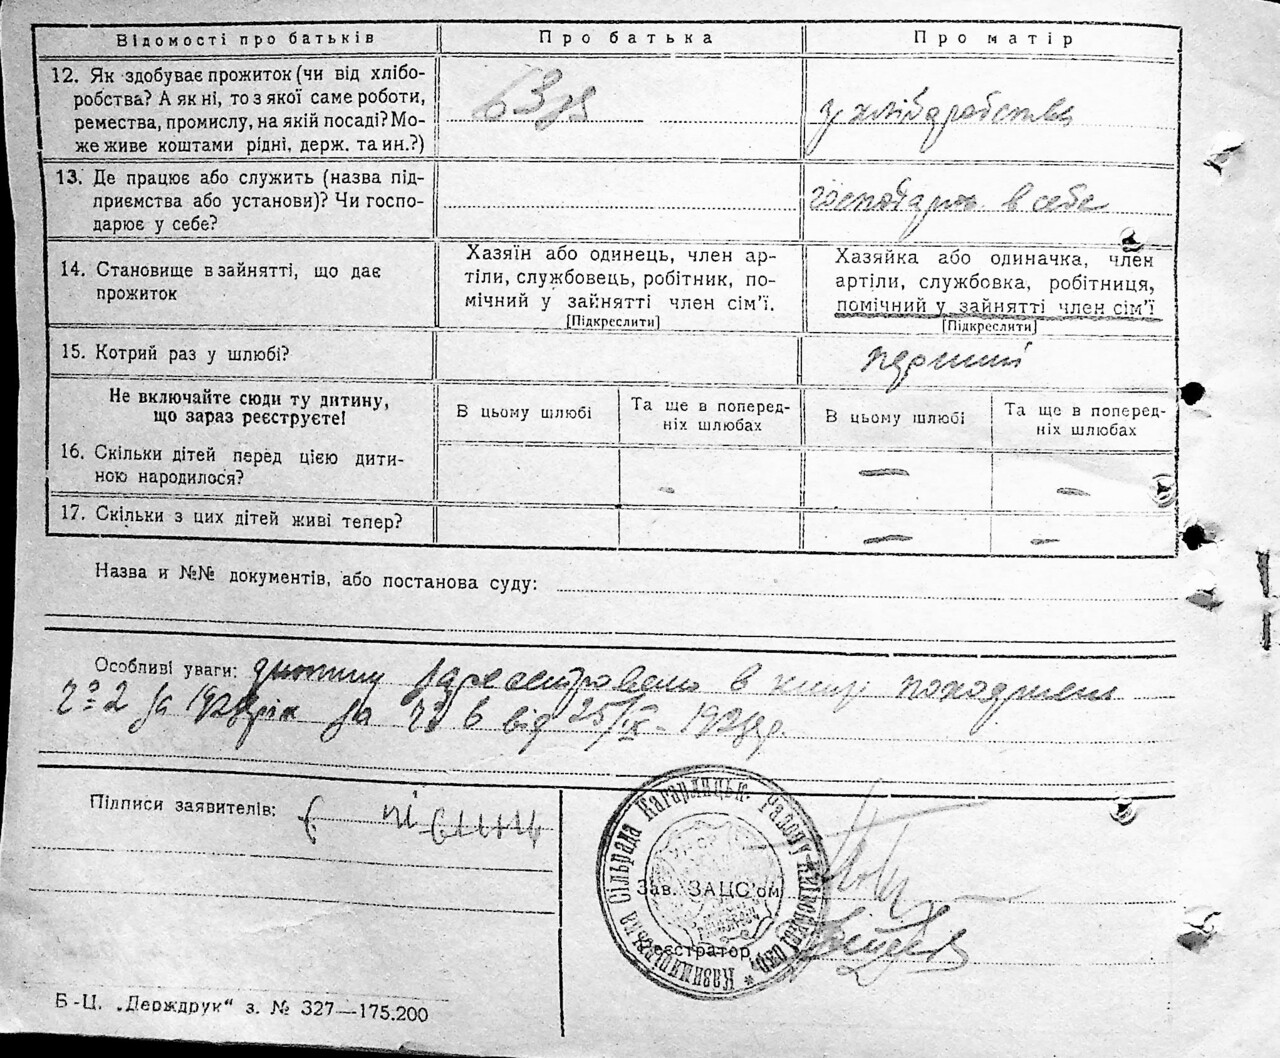 Відомості про батьків
Про батька
Про матір
12. Як здобуває прожиток (чи від хлібо-
робства? А як ні, то з якої саме роботи,
ремества, промислу, на якій посаді? Мо-
же живе коштами рідні, держ. та ин.?)
з хліборобства
13. Де працює або служить (назва під-
приємства або установи)? Чи госпо-
дарює у себе?
в себе
14. Становище в зайнятті, що дає
прожиток
Хазяїн або одинець, член ар-
тіли, службовець, робітник, по-
мічний у зайнятті член сім'ї.
[Підкреслити]
Хазяйка або одиначка, член
артіли, службовка, робітниця,
помічний у зайнятті член сім'ї
[Підкреслити]
15. Котрий раз у шлюбі?
перший
Не включайте сюди ту дитину,
що зараз реєструєте!
В цьому шлюбі
Та ще в поперед-
ніх шлюбах
В цьому шлюбі
Та ще в поперед-
ніх шлюбах
16. Скільки дітей перед цією дити-
ною народилося?
-
—
—
17. Скільки з цих дітей живі тепер?
—
—
Назва и №№ документів, або постанова суду:
Особливі уваги: дитину зареєстровано в книзі
№ 2 за рік за № 6 від 25/IX-
Підписи заявителів:
Казицицька Сільрада Кагарлицьк. Району
Зав. ЗАЦС'ом
Реєстратор
Б-Ц. „Держдрук“ з. № 327—175.200